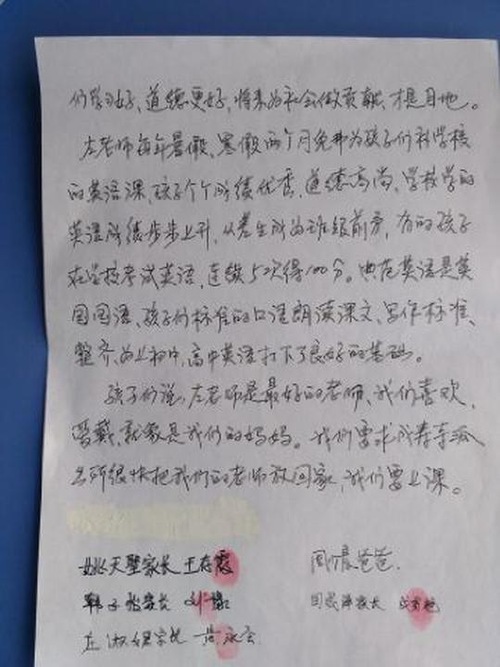 们学习好、道德更好,将来为社会做贡献,才是目地。
左老师每年暑假、寒假两个月免费为孩子们补学校
的英语课,孩子个个成绩优秀,道德高尚、学校学的
英语成绩步步上升,从差生成为班级前茅,有的孩子
在学校考试英语,连续5次得100分。典范英语是英
国国语、孩子们标准的口语朗读课文、写作标准、
整齐、为上初中,高中英语打下了良好的基础。
孩子们说,左老师是最好的老师、我们喜欢、
爱戴,就象是我们的妈妈。我们要求
很快把我们的老师放回家,我们要上课。
姚天圣家长 王存霞
周晴爸爸.
韩子 家长 刘
田 家长
左淑 家长 永